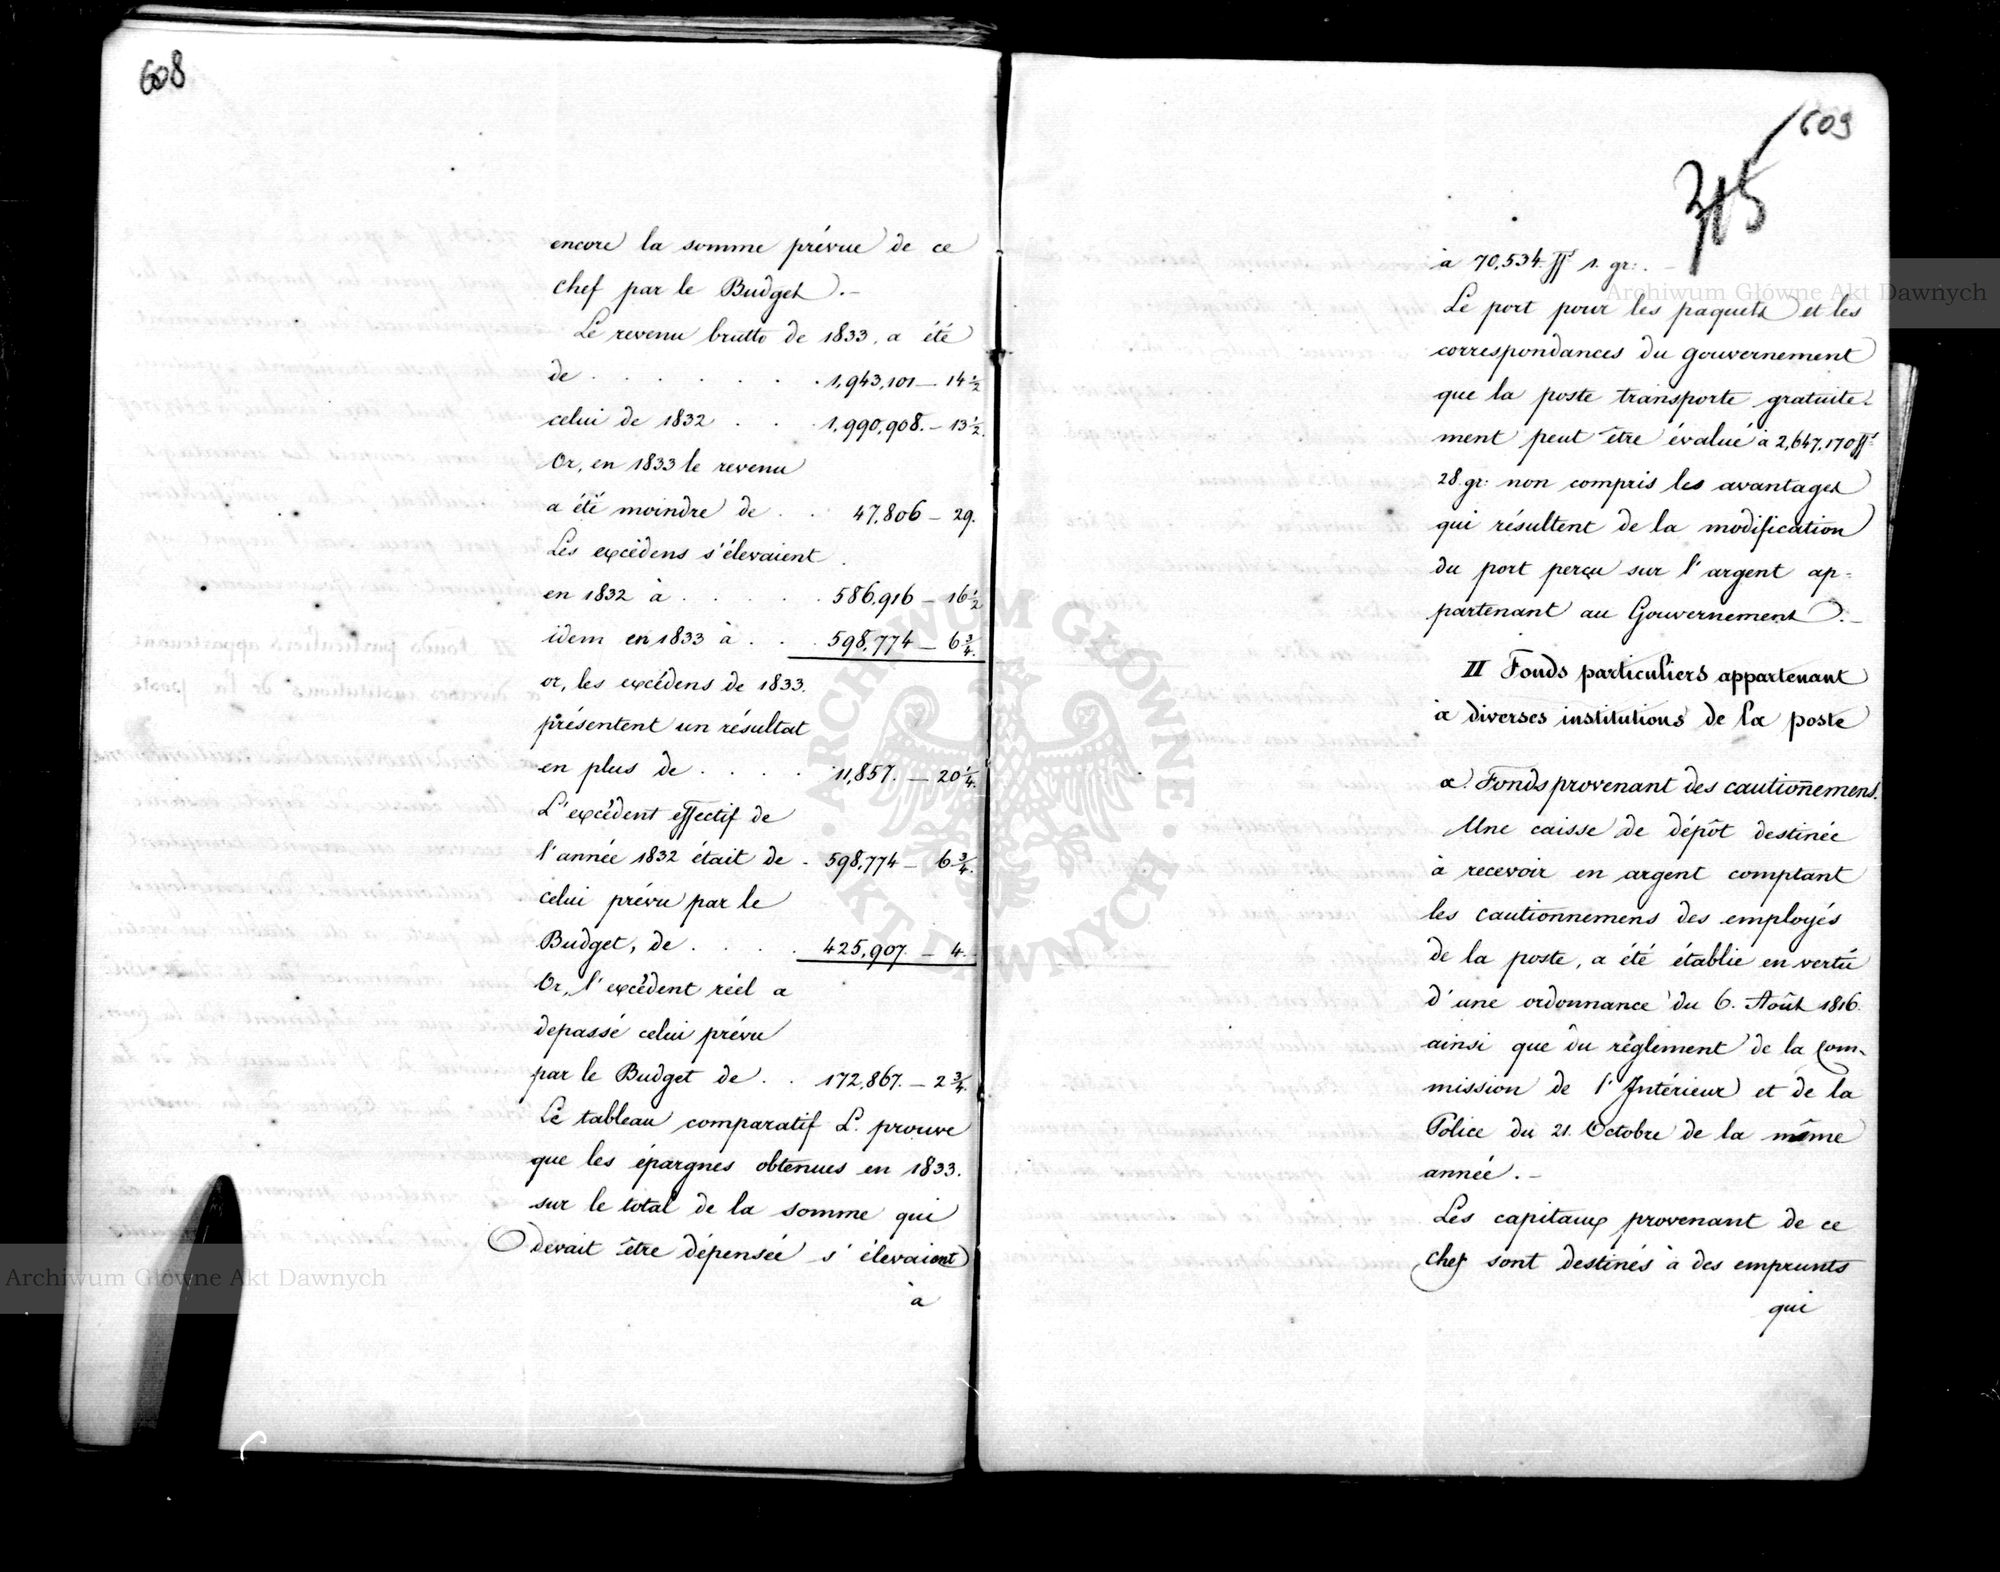 608
encore la somme prévue de ce
chef par le Budget. –
Le revenu brutto de 1833, a été
de . . . . . . . 1,943,101 – 14 ½
celui de 1832 . . . 1,990,908. – 13 ½.
Or, en 1833 le revenu
a été moindre de . . 47,806 – 29.
Les excédens s'élevaient .
en 1832 à . . . . . 586,916 – 16 ½
idem en 1833 à . . . 598,774 – 6 ¾.
or, les excédens de 1833.
présentent un résultat
en plus de . . . . 11,857. – 20 ¼.
L'excédent effectif de
l'année 1832 était de . 598,774 – 6 ¾.
celui prévu par le
Budget, de . . . . 425,907. – 4.
Or, l'excédent réel a
depassé celui prévu
par le Budget de . . 172,867. – 2 ¾.
Le tableau comparatif L. prouve
que les épargnes obtenues en 1833.
sur le total de la somme qui
devait être dépensée s'élevaient
à
609
315
à 70,534 fl 1. gr: . –
Le port pour les paquets et les
correspondances du gouvernement
que la poste transporte gratuite-
ment peut être évalué à 2,647,170 fl
28. gr: non compris les avantages
qui résultent de la modification
du port perçu sur l'argent ap=
partenant au Gouvernement. –
II Fonds particuliers appartenant
à diverses institutions de la poste
a. Fonds provenant des cautionnemens.
Une caisse de dépôt destinée
à recevoir en argent comptant
les cautionnemens des employés
de la poste, a été établie en vertu
d'une ordonnance du 6. Août 1816.
ainsi que du réglement de la Com-
mission de l'Intérieur et de la
Police du 21. Octobre de la même
année. –
Les capitaux provenant de ce
chef sont destinés à des emprunts
qui
Archiwum Główne Akt Dawnych
Archiwum Główne Akt Dawnych
ARCHIWUM GŁÓWNE · AKT DAWNYCH ·